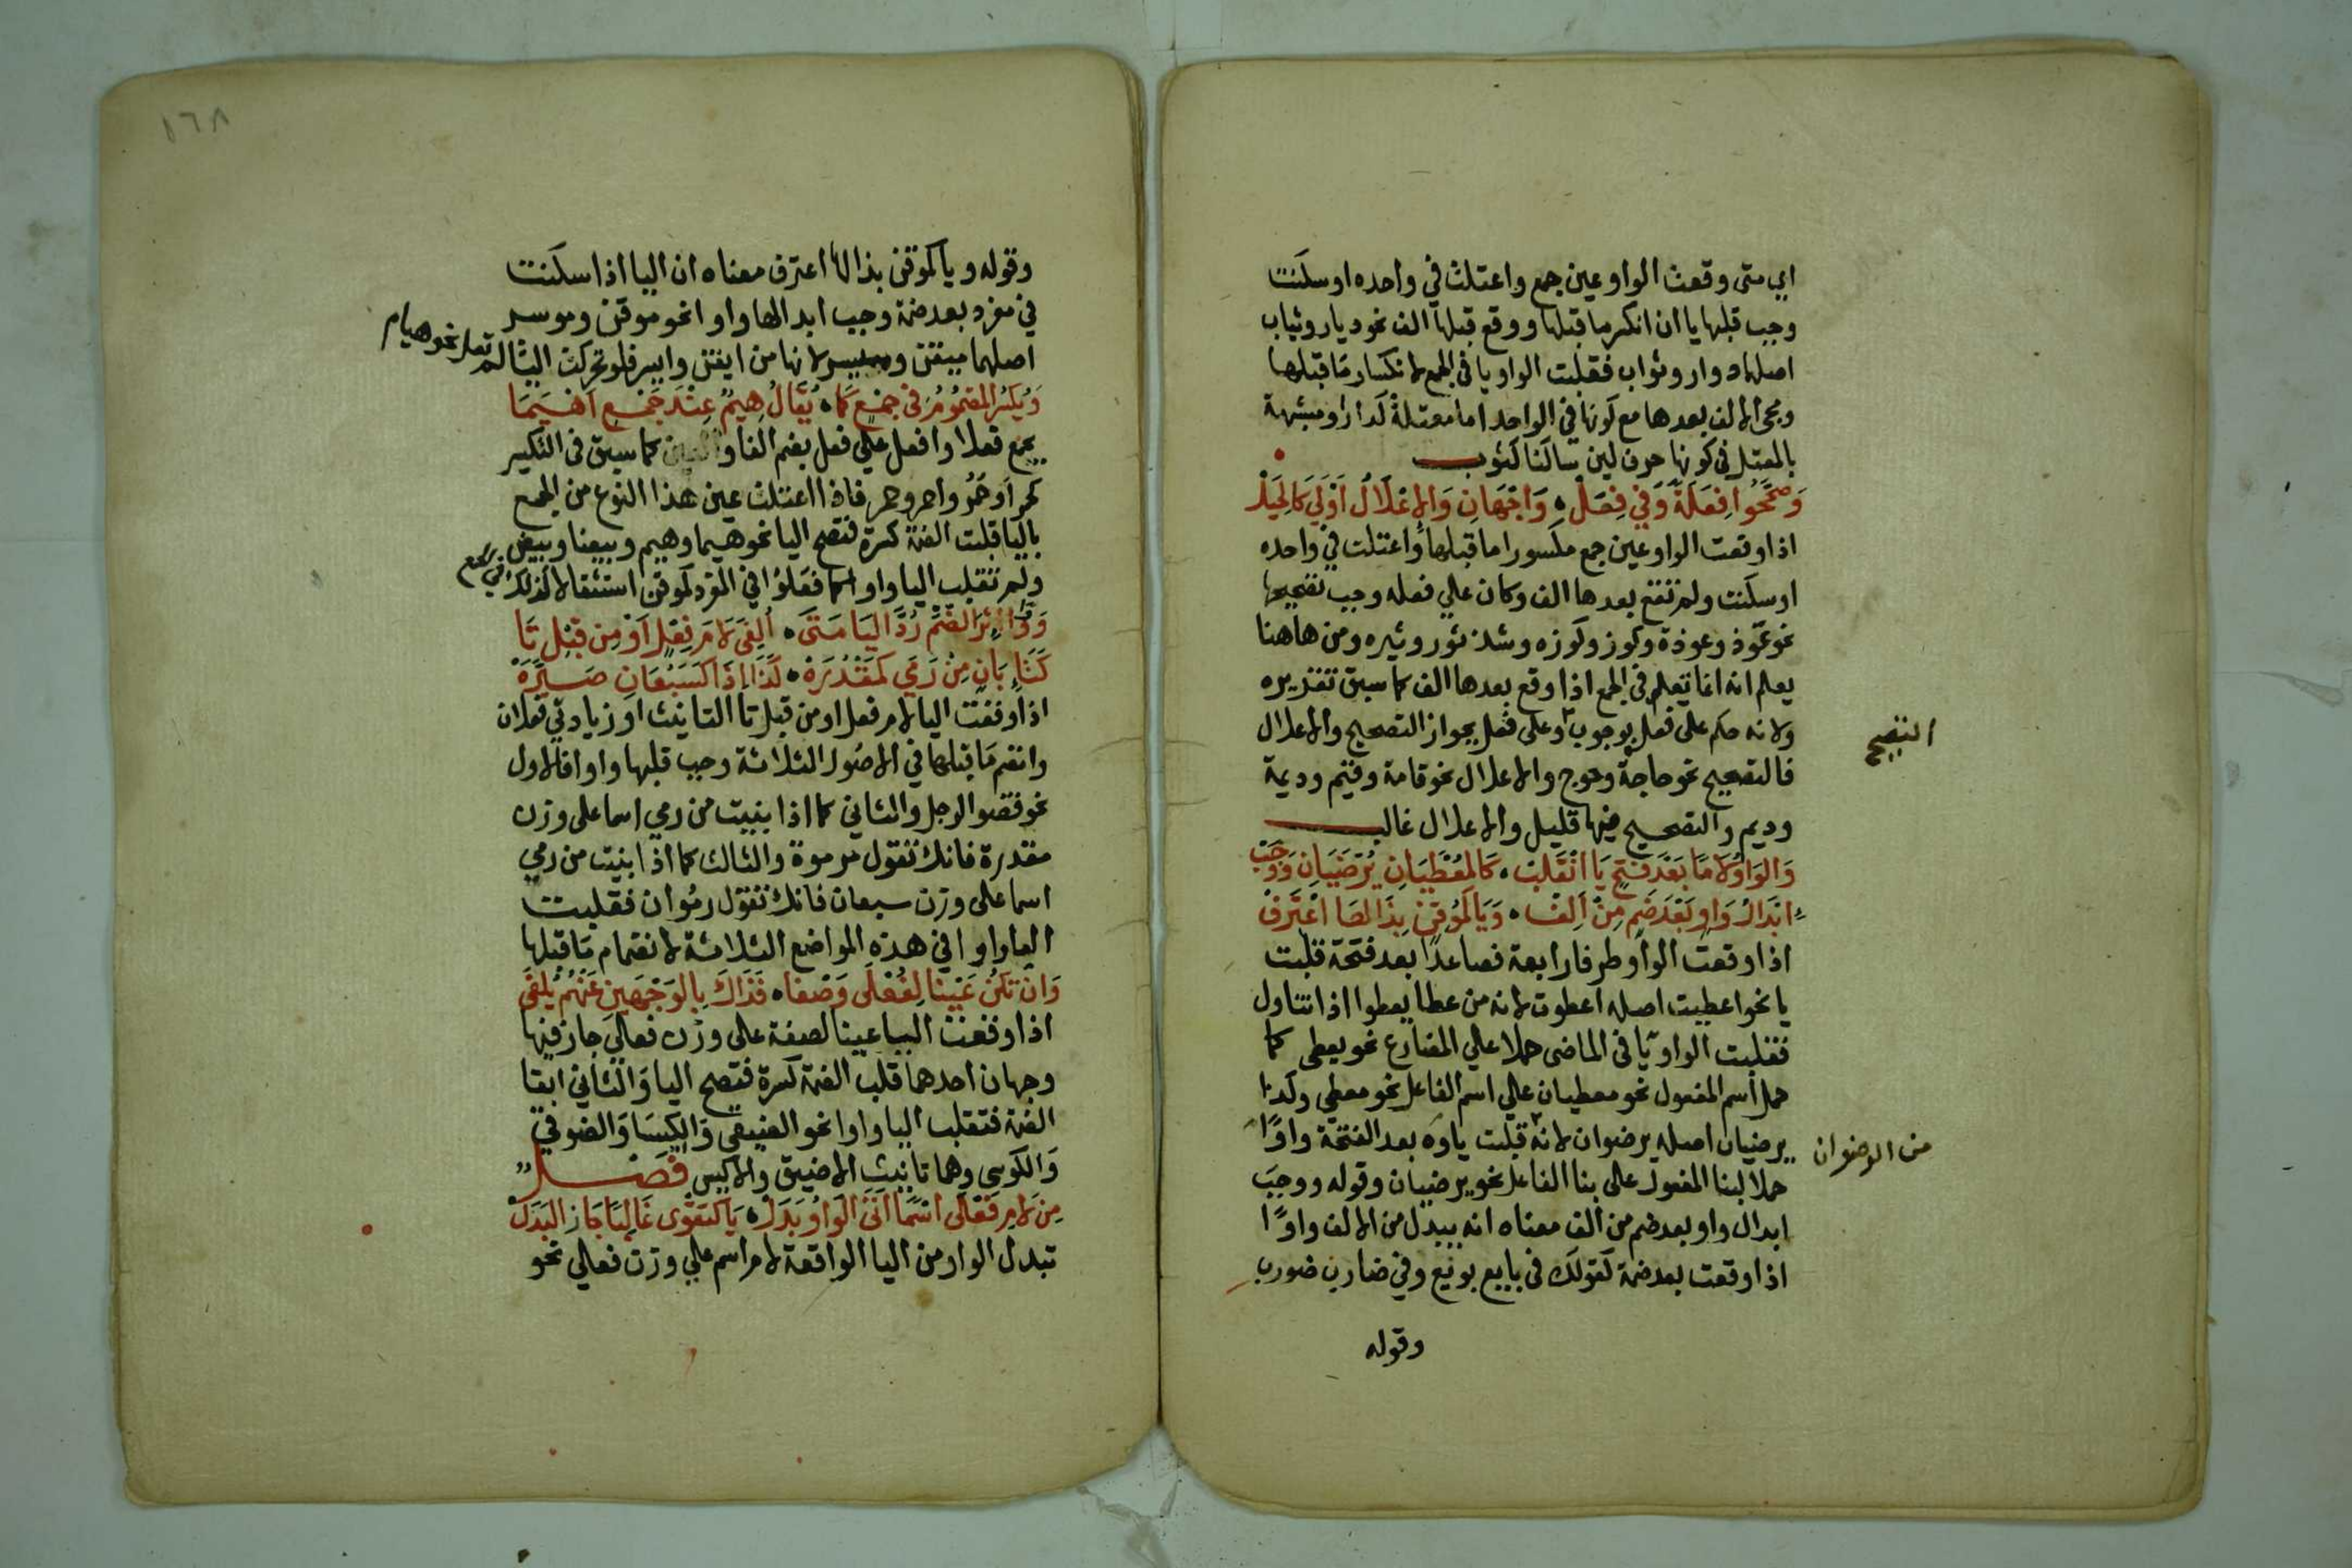 اي متى وقعت الواو عين جمع واعتلت في واحده او سكنت
وجب قلبها يا ان انكسر ما قبلها ووقع قبلها الف نحو ديار وثياب
اصلها دوار وثواب فقلبت الواو يا في الجمع لانكسار ما قبلها
ومجى الالف بعدها مع كونها في الواحد اما معتلة كدار او مشبهة
بالمعتل في كونها حرف لين ساكنا كثوب
وَصَحَّحُوا فِعَلَةً وَفي فِعَلْ ۰ وَجْهَانِ وَالإِعْلَالُ اَوْلَي كَالحِيَلْ
اذا وقعت الواو عين جمع مكسورا ما قبلها واعتلت في واحده
او سكنت ولم تقع بعدها الف وكان علي فعله وجب تصحيحها
نحو عود وعودة وكوز وكوزه وشذ ثور وثيره ومن هاهنا
يعلم انه انما تعلم في الجمع اذا وقع بعدها الف كما سبق تقريره
ولانه حكم على فعل بوجوب وعلى فعل بجواز التصحيح والاعلال
التصحيح
فالتصحيح نحو حاجة وحوج والاعلال نحو قامة وقيم وديمة
وديم والتصحيح فيها قليل والاعلال غالب
وَالوَاوُ لَامًا بَعْدَ فَتْحٍ يَا انْقَلَبْ ۰ كَالمُعْطَيَانِ يُرْضَيَانِ وَوَجَبْ
اِبْدَالُ وَاوٍ بَعْدَ ضَمٍ مِنْ اَلِفْ ۰ وَيَا كَمُوقِنْ بِذَا لَهَا اعْتَرَفْ
اذا وقعت الواو طرفا رابعة فصاعدا بعد فتحة قلبت
يا نحو اعطيت اصله اعطوت لانه من عطا يعطوا اذا تناول
فقلبت الواو يا في الماضى حملا علي المضارع نحو يعطى كما
حمل اسم المفعول نحو معطيان علي اسم الفاعل نحو معطي وكذا
يرضيان اصله يرضوان لانه قلبت ياوه بعد الفتحة واوا
من الرضوان
حملا لبنا المفعول على بنا الفاعل نحو يرضيان وقوله ووجب
ابدال واو بعد ضم من الف معناه انه يبدل من الالف واوا
اذا وقعت بعد ضمة كقولك في بايع بويع وفي ضارب ضورب
وقوله
١٦٨
وقوله ويا كموقن بذا لها اعترف معناه ان اليا اذا سكنت
في مفرد بعد ضمة وجب ابدالها واوا نحو موقن وموسر
اصلهما ميقن وميسر لانها من ايقن وايسر فلو تحركت اليا لم تعل نحو هيام
وَيُكْسَرُ المَضْمُومُ في جَمْعٍ كَمَا ۰ يُقَالُ هِيمٌ عِنْدَ جَمْعِ اَهْيَمَا
يجمع فعلا وافعل علي فعل بضم الفا وكما سبق في التكسير
كحمرا وحمر واحمر وحمر فاذا اعتلت عين هذا النوع من الجمع
باليا قلبت الضمة كسرة لتصح اليا نحو هيما وهيم وبيضا وبيض
ولم تقلب اليا واوا كما فعلوا في المفرد كموقن استثقالا لذلك في الجمع
وَوَاوًا اثْرَ الضَّمِّ رُدَّ اليَا مَتَى ۰ اُلْفِيَ لَامَ فِعْلٍ اَوْ مِن قَبْلِ تَا
كَتَاءِ بَانٍ مِنْ رَمَي كَمَقْدُرَهْ ۰ كَذَا اِذَا كَسَبُعَانِ صَيَّرَهْ
اذا وقعت اليا لام فعل او من قبل تا التانيث او زيادتي فعلان
وانضم ما قبلها في الاصول الثلاثة وجب قلبها واوا فالاول
نحو قضو الرجل والثاني كما اذا بنيت من رمي اسما على وزن
مقدرة فانك تقول مرموة والثالث كما اذا بنيت من رمي
اسما على وزن سبعان فانك تقول رموان فقلبت
اليا واوا في هذه المواضع الثلاثة لانضمام ما قبلها
وَان تَكُنْ عَيْنًا لِفُعْلَى وَصْفَا ۰ فَذَاكَ بِالوَجْهَينِ عَنْهُمْ يُلْفَى
اذا وقعت اليا عينا لصفة على وزن فعلي جاز فيها
وجهان احدهما قلب الضمة كسرة فتصح اليا والثاني ابقا
الضمة فتقلب اليا واوا نحو الضيقى والكيسا والضوقي
والكوسي وهما تانيث الاضيق والاكيس فصل
مِن لَامِ فَعْلَى اسْمًا اَتَى الوَاوُ بَدَلْ ۰ يَا كَتَقْوَى غَالِبًا جَاز البَدَلْ
تبدل الواو من اليا الواقعة لام اسم علي وزن فعلي نحو